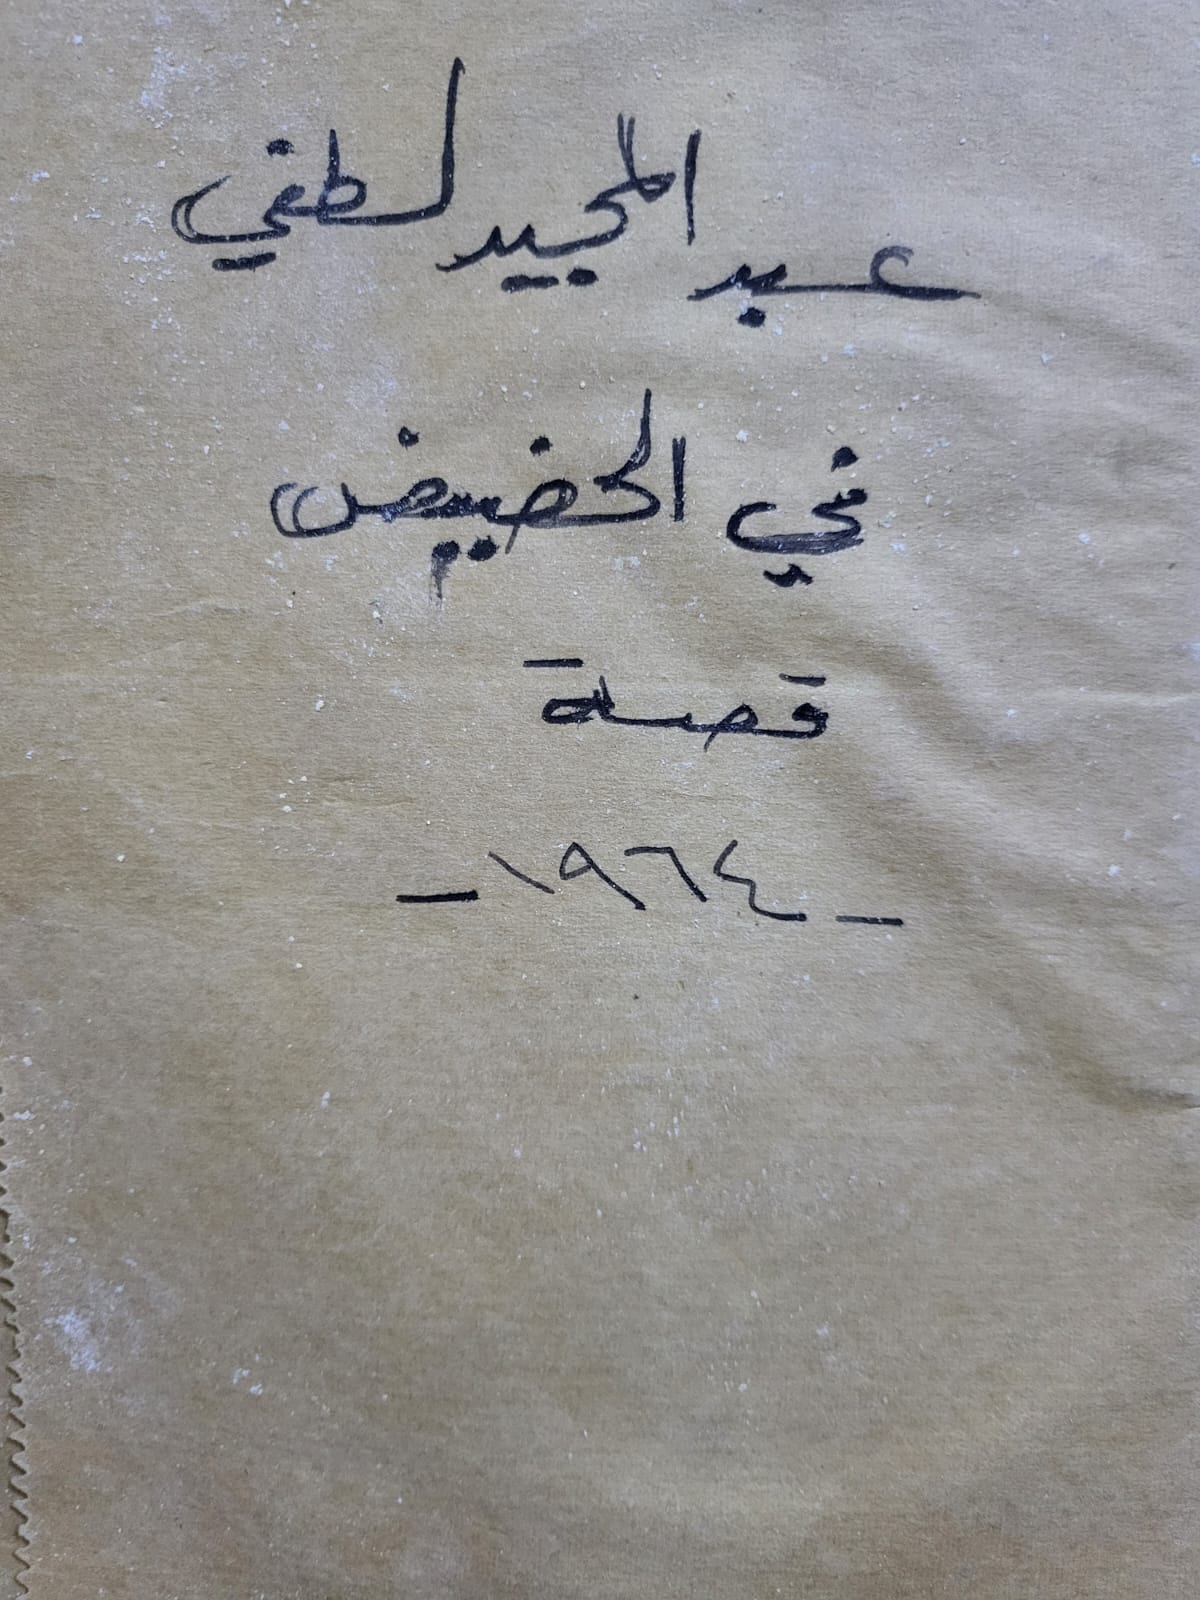 عبد المجيد لطفي
في الحضيض
قصة
- ١٩٦٤ -